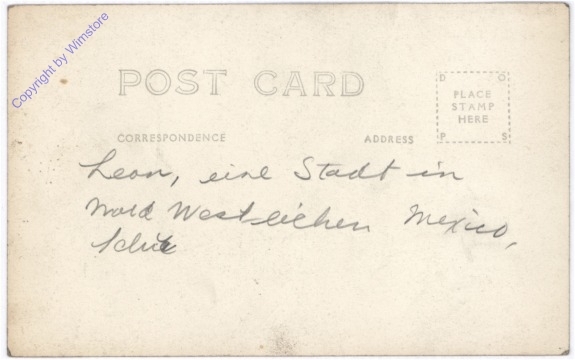 Copyright by Wimstore
POST CARD
D O
PLACE
STAMP
HERE
P S
CORRESPONDENCE
ADDRESS
Leon, eine Stadt in
Nord Westlichen Mexico,